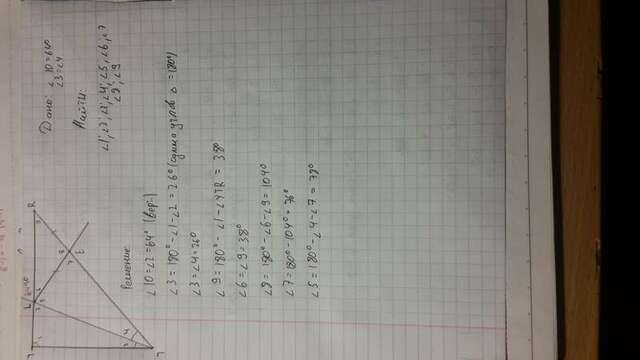 Дано: ∠10=64°
∠3=∠4
Найти:
∠1; ∠2; ∠3; ∠4; ∠5; ∠6; ∠7
∠8; ∠9
R
E
T
Решение
∠10=∠2=64° (верт.)
∠3=180°-∠1-∠2=26° (сумма углов △=180°)
∠3=∠4=26°
∠9=180°-∠1-∠4TR=38°
∠6=∠9=38°
∠8=180°-∠6-∠9=104°
∠7=180°-104°=76°
∠5=180°-∠4-∠7=78°